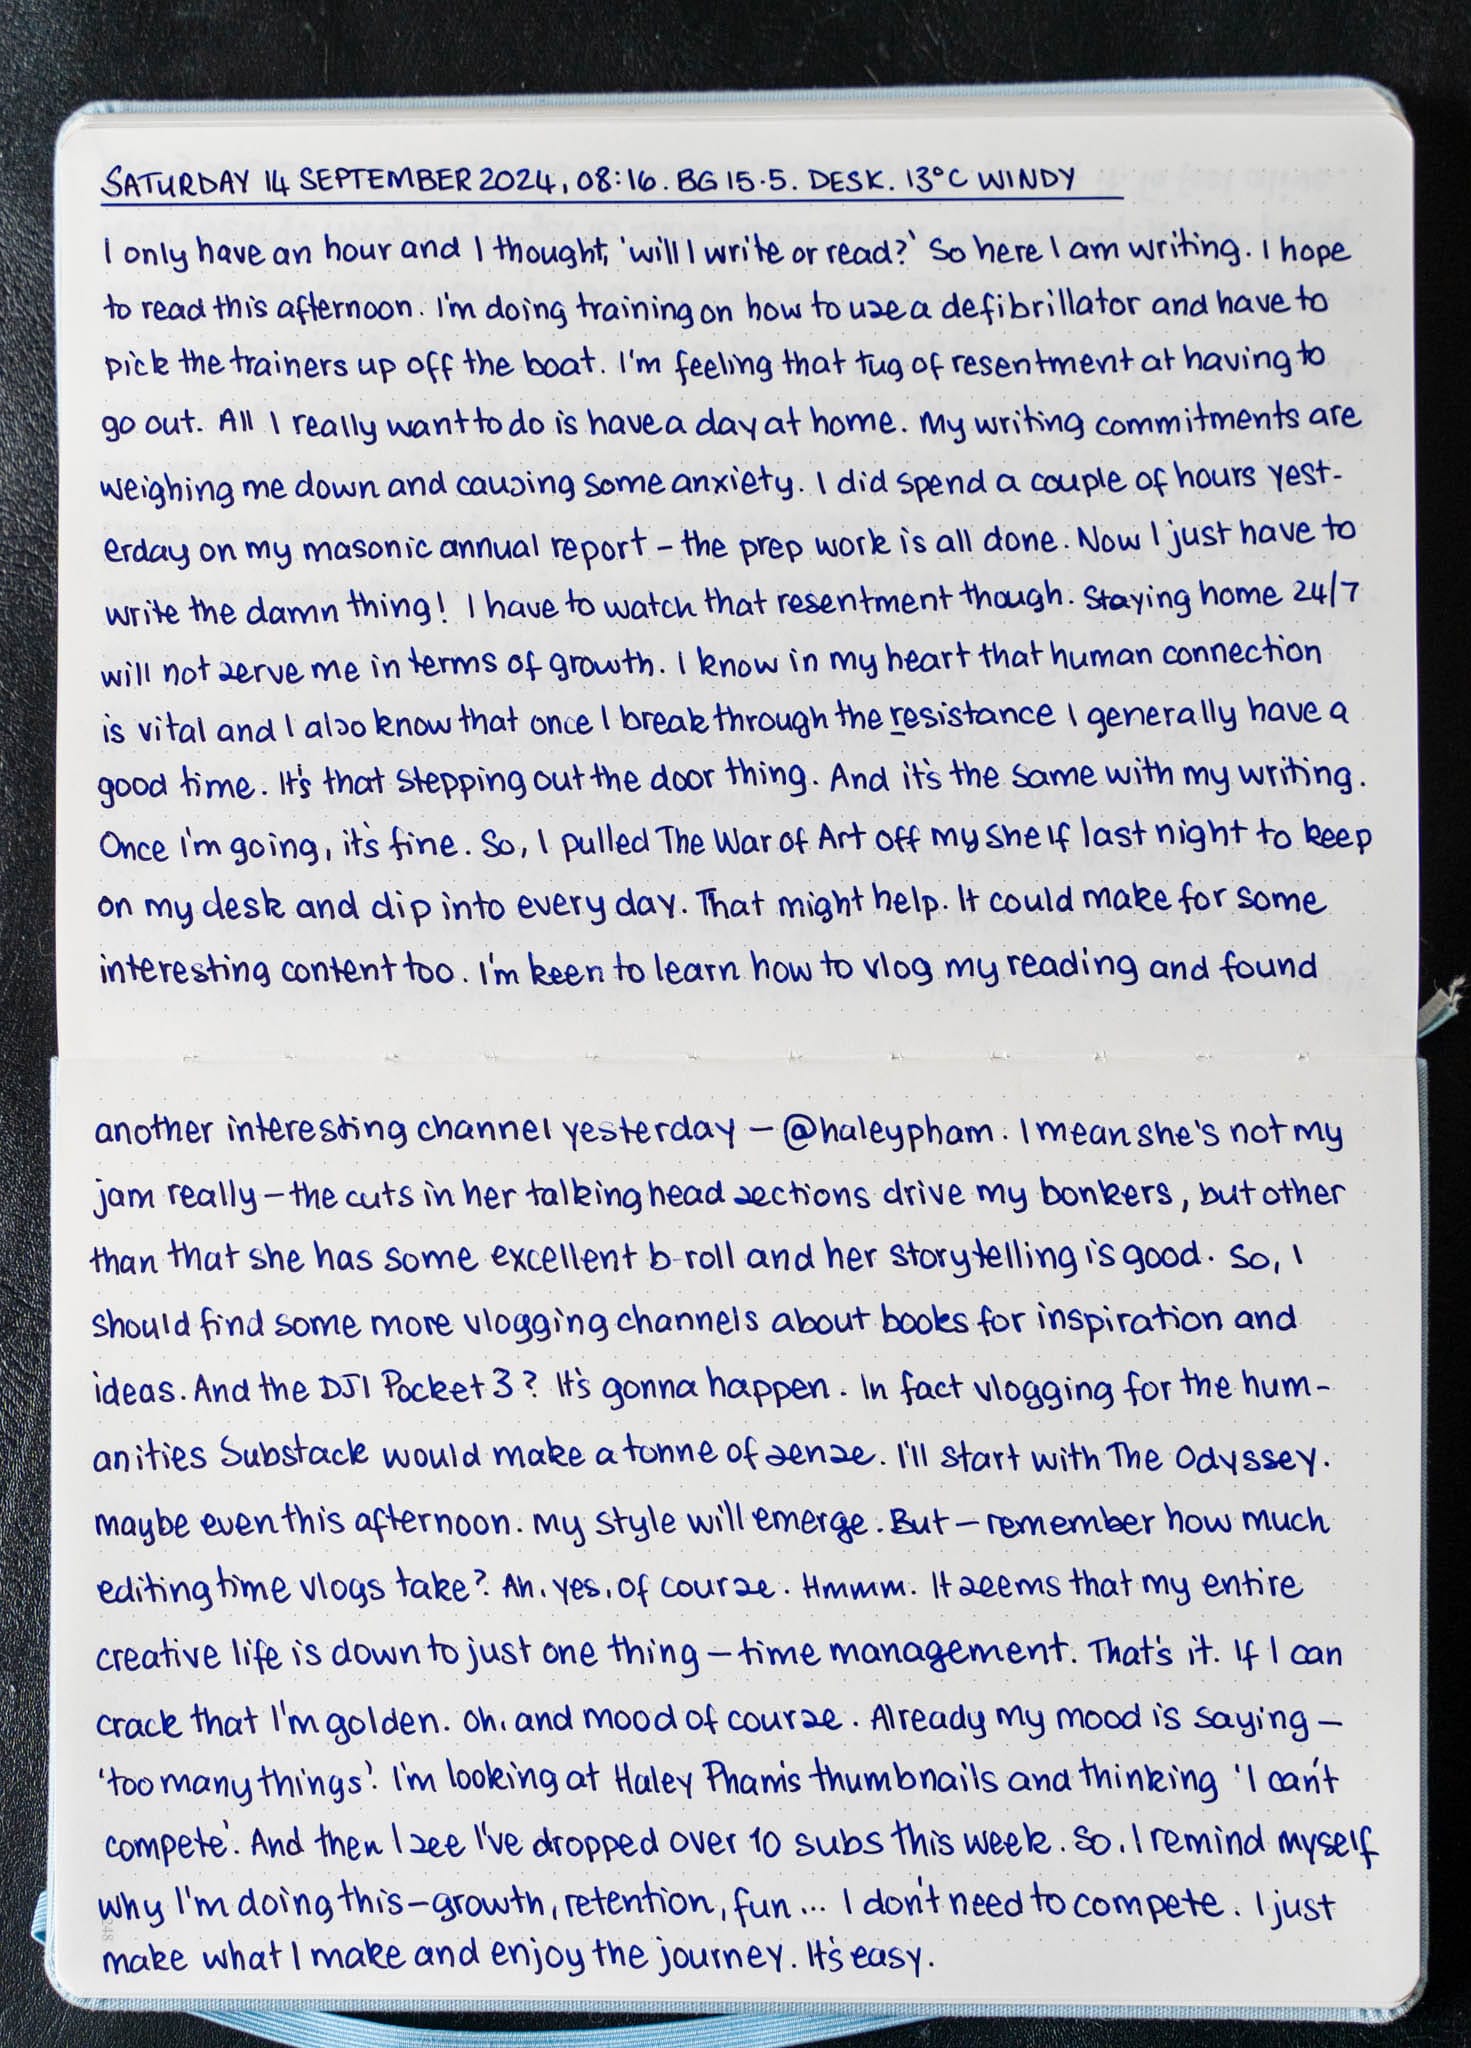 SATURDAY 14 SEPTEMBER 2024, 08:16. BG 15.5. DESK. 13°C WINDY
I only have an hour and I thought, 'will I write or read?' So here I am writing. I hope
to read this afternoon. I'm doing training on how to use a defibrillator and have to
pick the trainers up off the boat. I'm feeling that tug of resentment at having to
go out. All I really want to do is have a day at home. My writing commitments are
weighing me down and causing some anxiety. I did spend a couple of hours yest-
erday on my masonic annual report – the prep work is all done. Now I just have to
write the damn thing! I have to watch that resentment though. Staying home 24/7
will not serve me in terms of growth. I know in my heart that human connection
is vital and I also know that once I break through the resistance I generally have a
good time. It's that stepping out the door thing. And it's the same with my writing.
Once I'm going, it's fine. So, I pulled The War of Art off my shelf last night to keep
on my desk and dip into every day. That might help. It could make for some
interesting content too. I'm keen to learn how to vlog my reading and found
another interesting channel yesterday – @haleypham. I mean she's not my
jam really – the cuts in her talking head sections drive my bonkers, but other
than that she has some excellent b-roll and her storytelling is good. So, I
should find some more vlogging channels about books for inspiration and
ideas. And the DJI Pocket 3? It's gonna happen. In fact vlogging for the hum-
anities Substack would make a tonne of sense. I'll start with The Odyssey.
maybe even this afternoon. My style will emerge. But – remember how much
editing time vlogs take? Ah, yes, of course. Hmmm. It seems that my entire
creative life is down to just one thing – time management. That's it. If I can
crack that I'm golden. Oh, and mood of course. Already my mood is saying –
'too many things'. I'm looking at Haley Pham's thumbnails and thinking 'I can't
compete'. And then I see I've dropped over 10 subs this week. So, I remind myself
why I'm doing this – growth, retention, fun... I don't need to compete. I just
make what I make and enjoy the journey. It's easy.
248